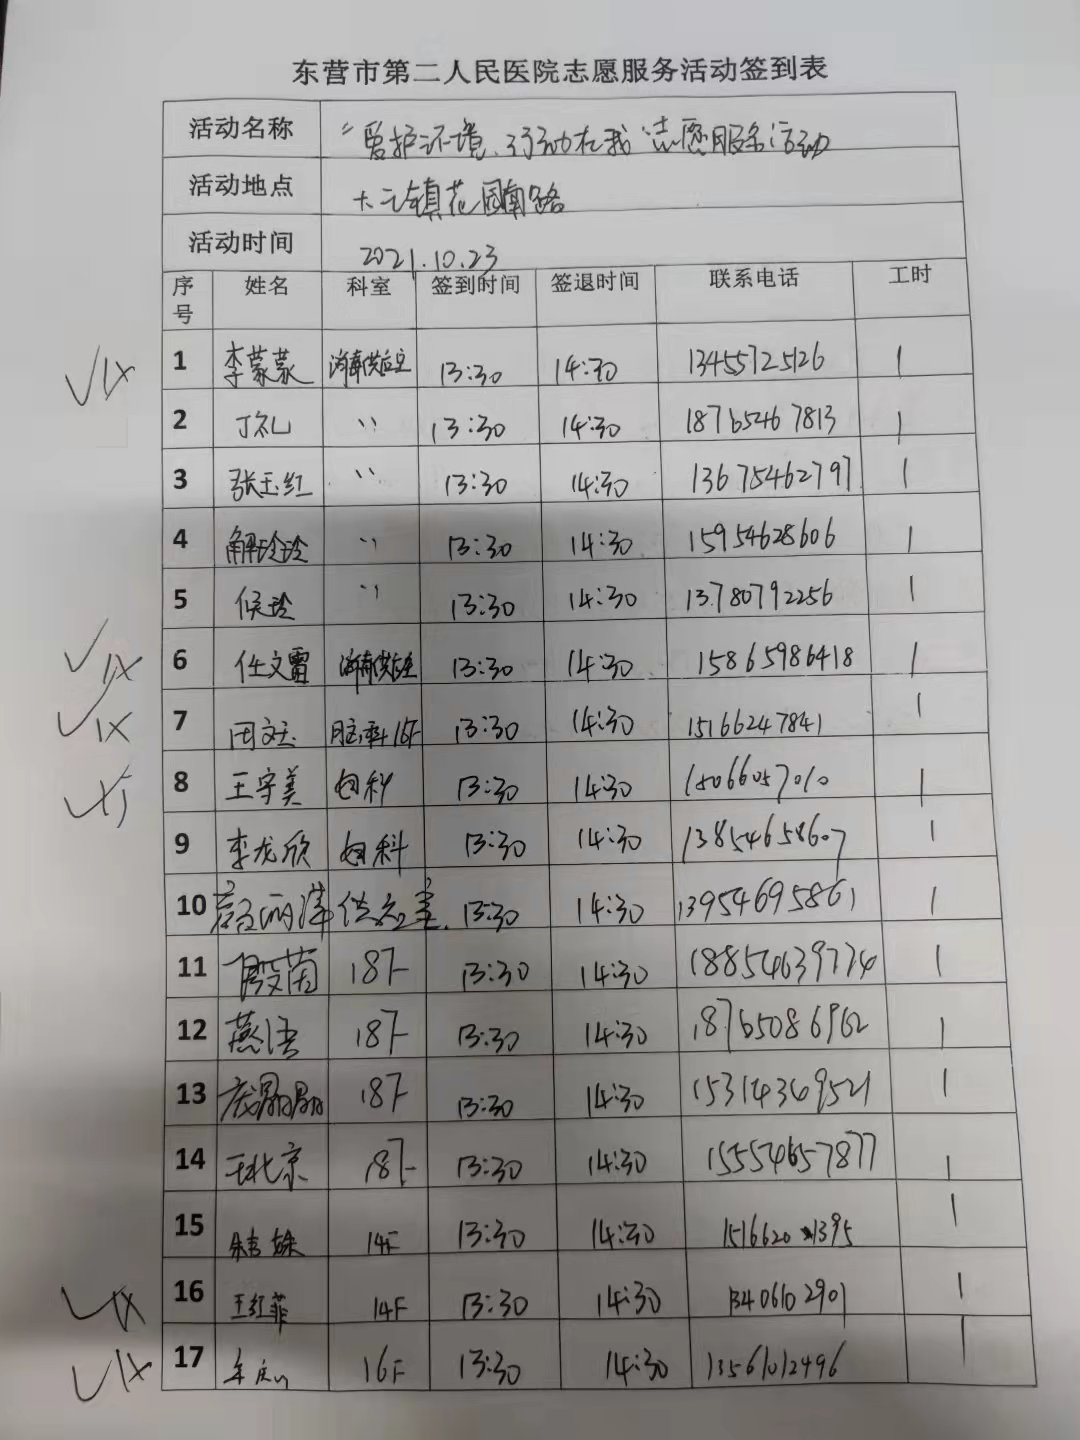 东营市第二人民医院志愿服务活动签到表
活动名称 “爱护环境、行动在我志愿服务活动
活动地点 大王镇花园南路
活动时间 2021.10.23
序号 姓名 科室 签到时间 签退时间 联系电话 工时
1 李蒙蒙 消毒供应室 13:30 14:30 13455725126 1
2 丁礼 〃 13:30 14:30 18765467813 1
3 张玉红 〃 13:30 14:30 13675462797 1
4 解玲玲 〃 13:30 14:30 15954628606 1
5 侯玲 〃 13:30 14:30 13780792256 1
6 任文霞 消毒供应室 13:30 14:30 15865986418 1
7 田文 16F 13:30 14:30 15166247841 1
8 王守美 妇科 13:30 14:30 18066057010 1
9 李龙欣 妇科 13:30 14:30 13854658607 1
10 供应室 13:30 14:30 13954695861 1
11 殷茵 18F 13:30 14:30 18854639724 1
12 燕语 18F 13:30 14:30 18765086962 1
13 13:30 18F 14:30 15314369521 1
14 王北京 18F 13:30 14:30 15554657877 1
15 14F 13:30 14:30 1516620 1395 1
16 王红菲 14F 13:30 14:30 13406102901 1
17 16F 13:30 14:30 13561012496 1